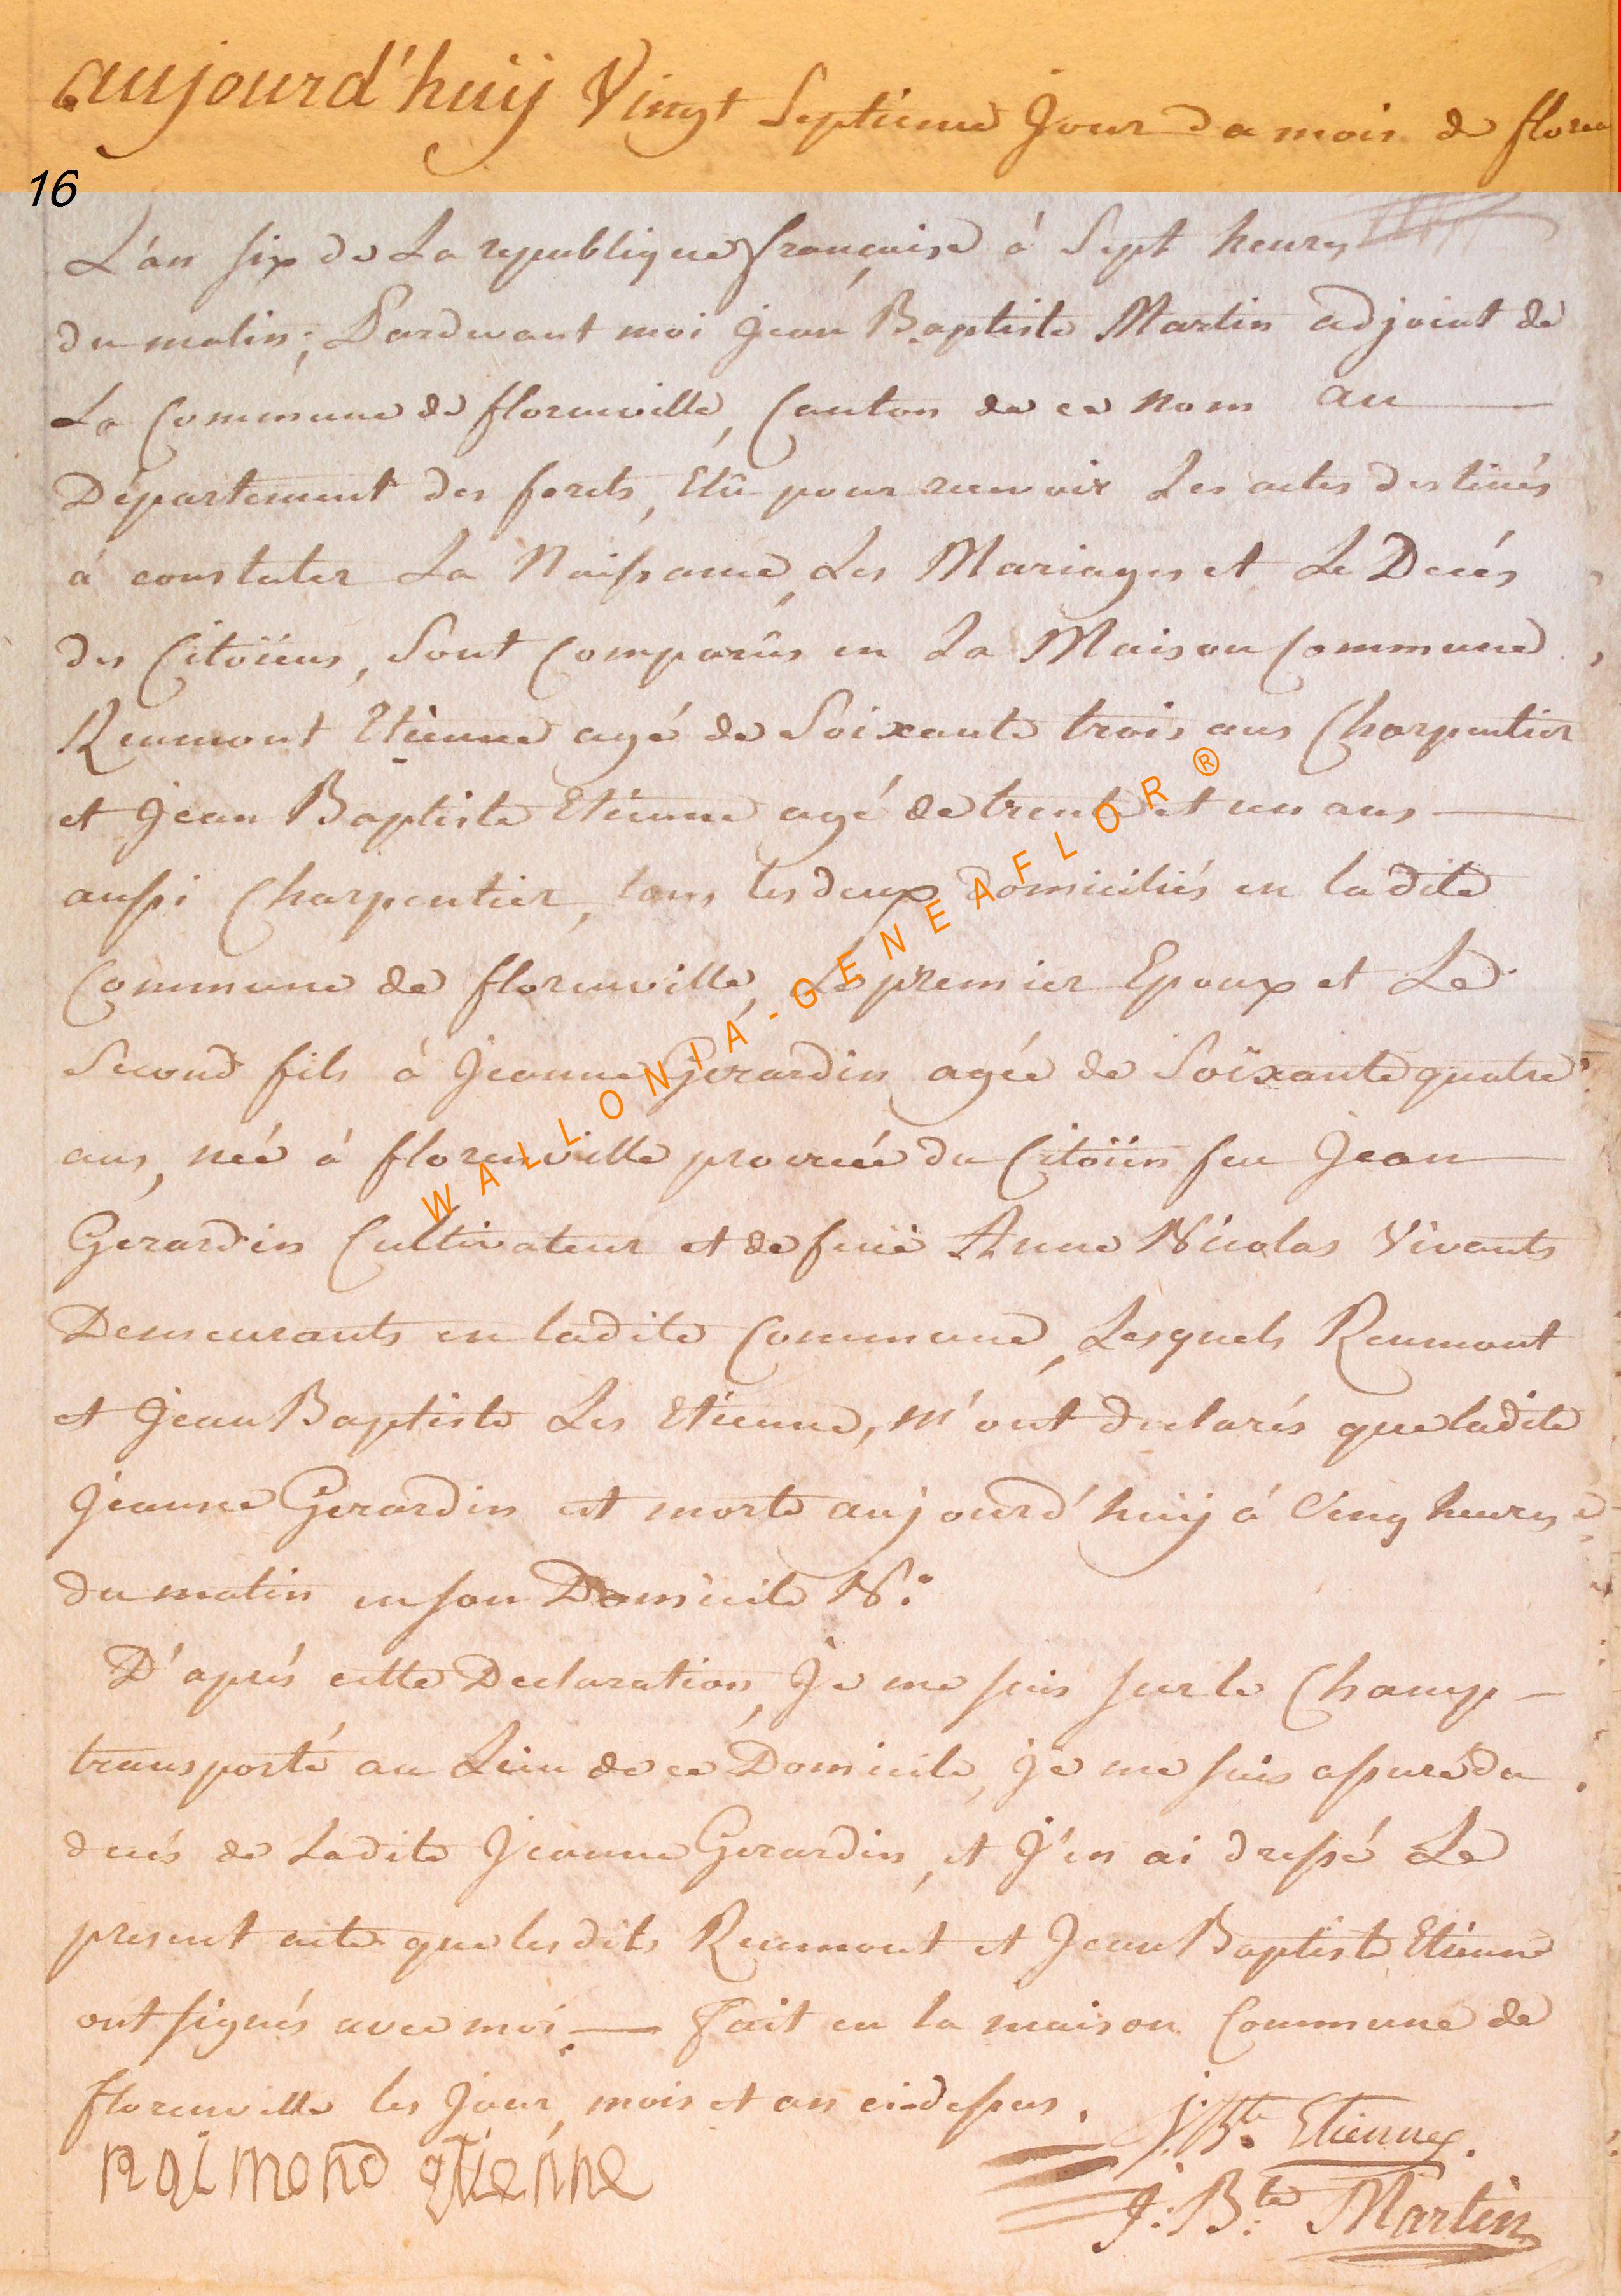 aujourd'huÿ Vingt Septieme Jour du mois de florea
16
L'an six de La republique françoise á Sept heures
du matin; Pardevant moi Jean Baptiste Martin adjoint de
La Commune de florenville, Canton de ce nom au
Département des forets, Elû pour recevoir Les actes destinés
á constater La Naissance, Les Mariages et Le Decés
des Citoïens, Sont Comparûs en La Maison Commune
Remmont Etienne agé de Soixante trois ans Charpentier
et Jean Baptiste Etienne agé de trente et un ans
aussi Charpentier, tous les deux domiciliés en la dite
Commune de florenville, Le premier Epoux et Le
Second fils á Jeanne Gerardin agée de Soixante quatre
ans, neé á florenville procreée du Citoïen feu Jean
Gerardin Cultivateur et de feuë Anne Nicolas Vivants
Demeurants en ladite Commune, Lesquels Remmont
et Jean Baptiste Les Etienne, m'ont declarés que ladite
Jeanne Gerardin est morte aujourd'huÿ á Cinq heures
du matin en son Domicile N:
D'aprés cette Declaration, Je me suis sur le Champ
transporté au Lieu de ce Domicile, Je me suis assuré du
decés de Ladite Jeanne Gerardin, et J'en ai dressé Le
present acte que lesdits Remmont et Jean Baptiste Etienne
ont signés avec moi. Fait en la maison Commune de
florenville les Jour, mois et an cidessus.
J: Bte Etienne.
Raimond Etienne
J: Bte Martin
WALLONIA-GENEAFLOR®